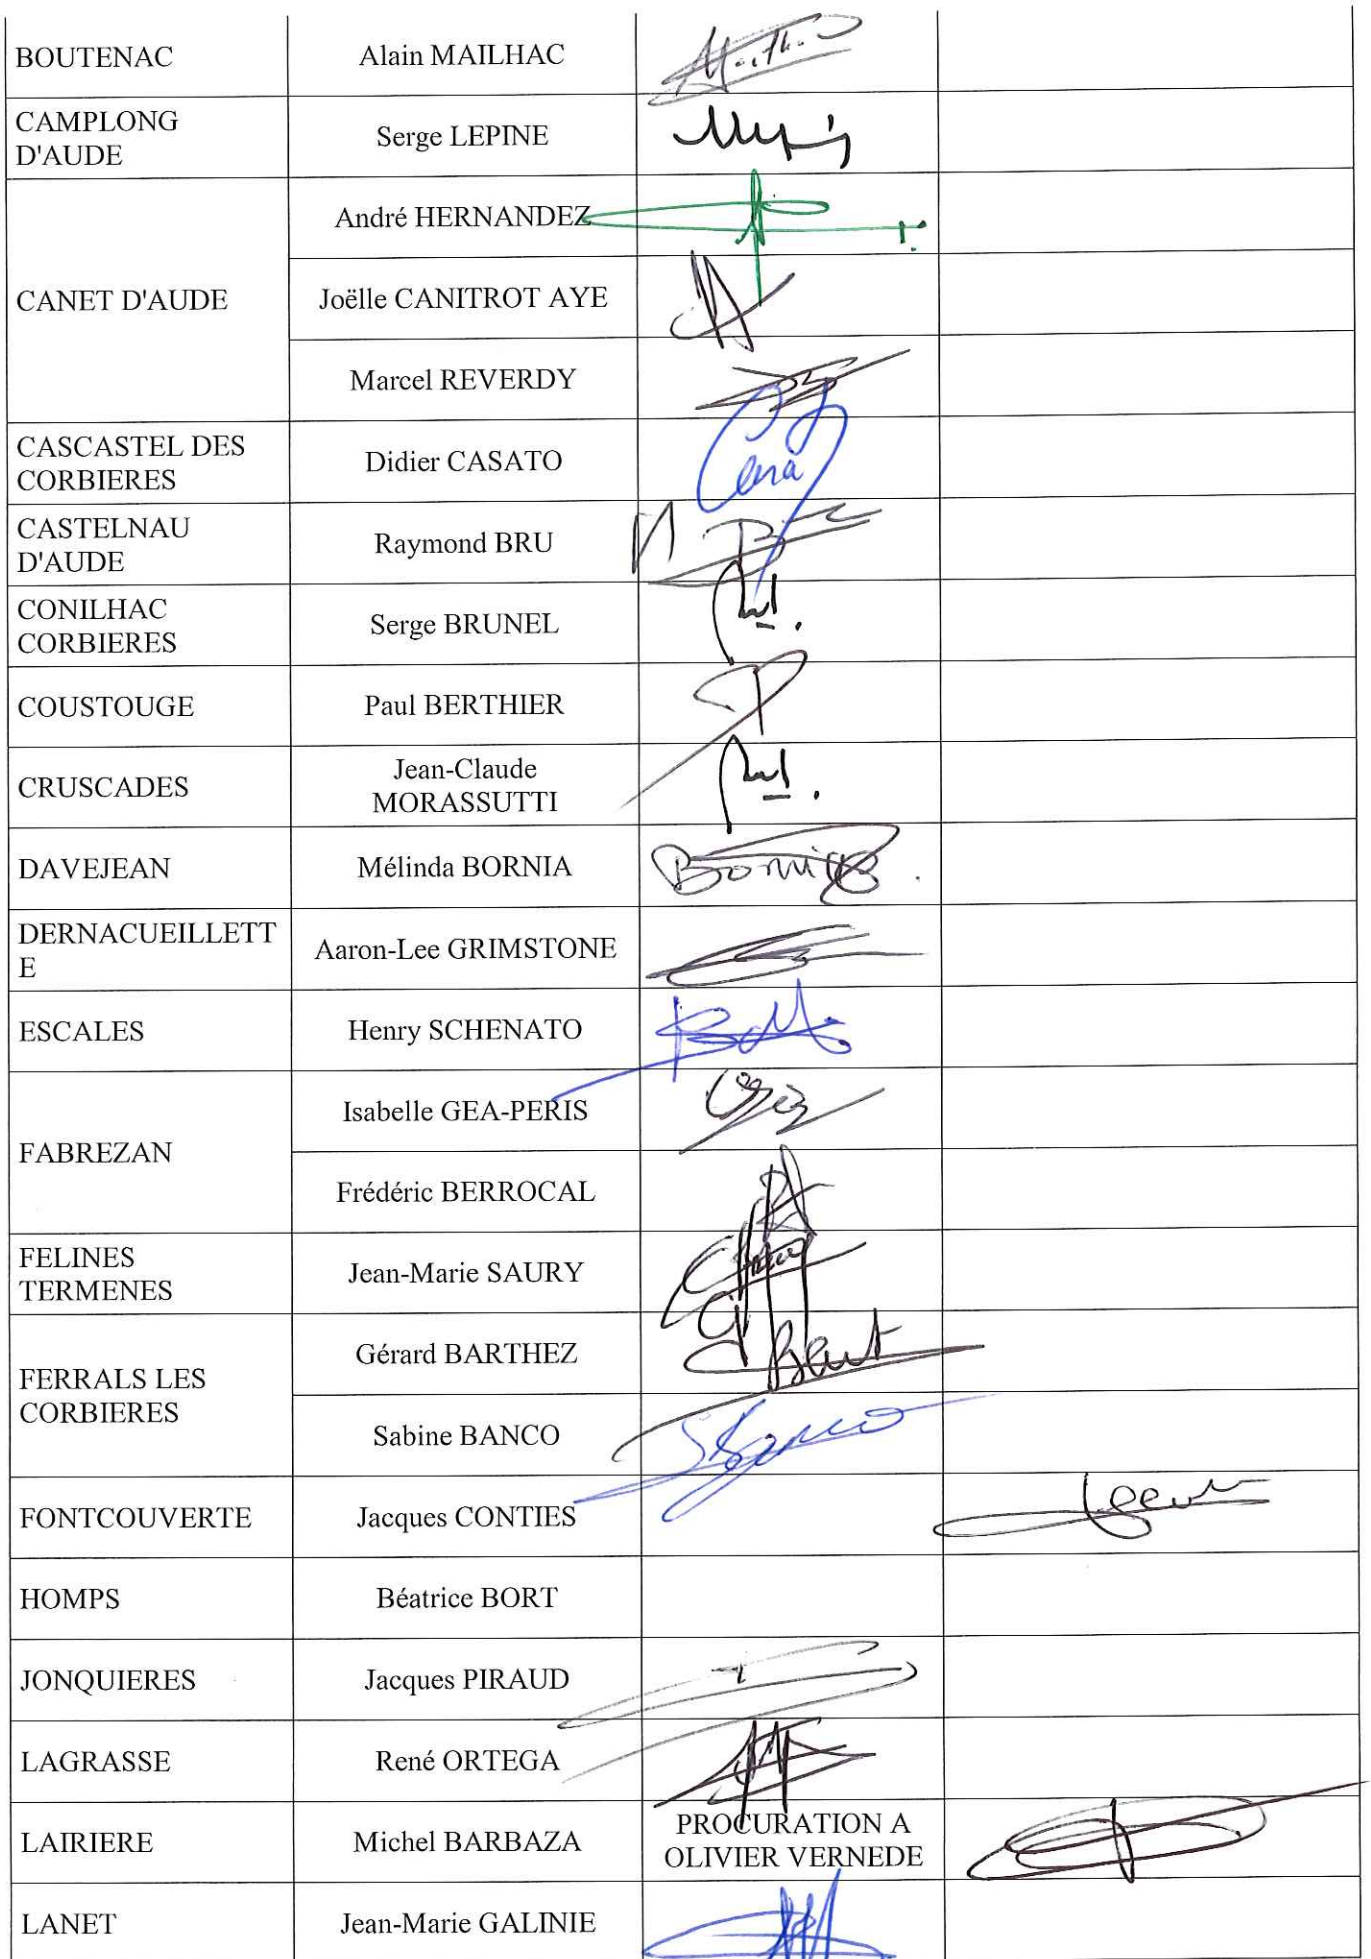 BOUTENAC
Alain MAILHAC
CAMPLONG
D'AUDE
Serge LEPINE
CANET D'AUDE
André HERNANDEZ
Joëlle CANITROT AYE
Marcel REVERDY
CASCASTEL DES
CORBIERES
Didier CASATO
CASTELNAU
D'AUDE
Raymond BRU
CONILHAC
CORBIERES
Serge BRUNEL
COUSTOUGE
Paul BERTHIER
CRUSCADES
Jean-Claude
MORASSUTTI
DAVEJEAN
Mélinda BORNIA
DERNACUEILLETT
E
Aaron-Lee GRIMSTONE
ESCALES
Henry SCHENATO
FABREZAN
Isabelle GEA-PERIS
Frédéric BERROCAL
FELINES
TERMENES
Jean-Marie SAURY
FERRALS LES
CORBIERES
Gérard BARTHEZ
Sabine BANCO
FONTCOUVERTE
Jacques CONTIES
HOMPS
Béatrice BORT
JONQUIERES
Jacques PIRAUD
LAGRASSE
René ORTEGA
LAIRIERE
Michel BARBAZA
PROCURATION A
OLIVIER VERNEDE
LANET
Jean-Marie GALINIE